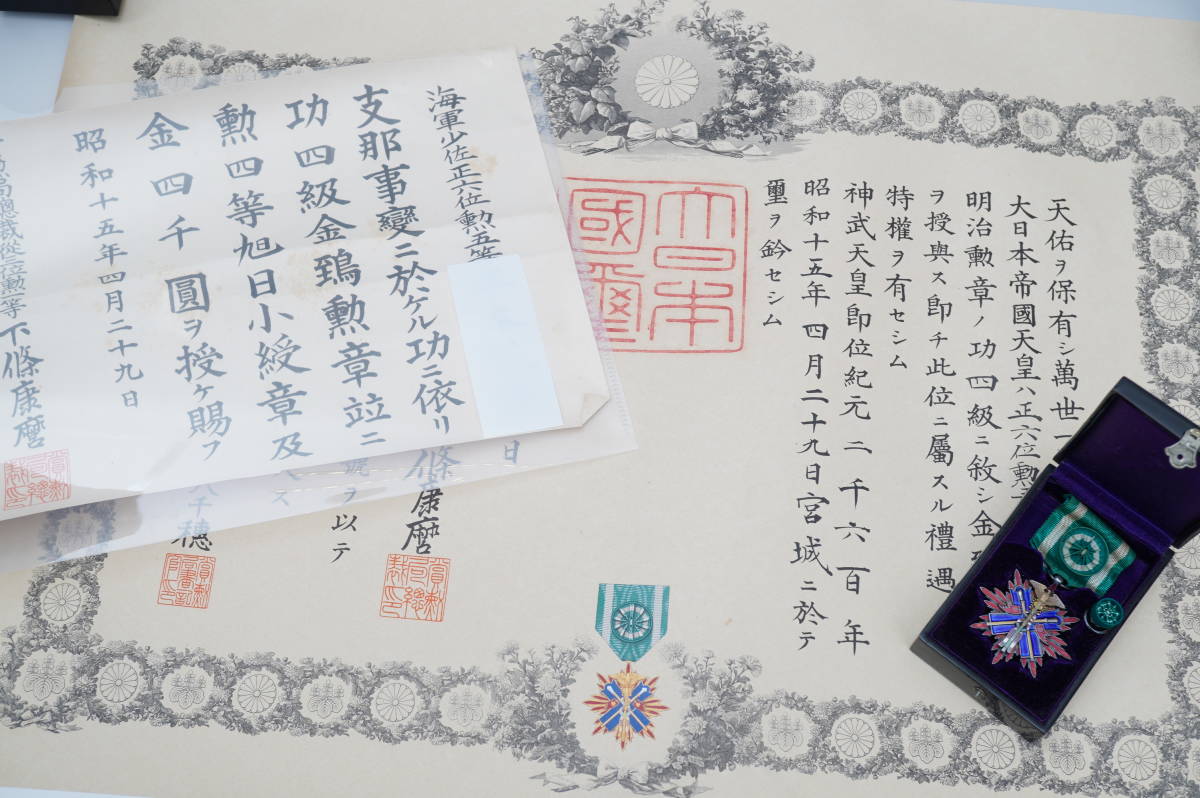 天佑ヲ保有シ萬世一
大日本帝國天皇ハ正六位勳
明治勲章ノ功四級ニ敘シ金
ヲ授與ス即チ此位ニ屬スル禮遇
特權ヲ有セシム
神武天皇即位紀元二千六百年
昭和十五年四月二十九日宮城ニ於テ
璽ヲ鈐セシム
大日本
國璽
海軍少佐正六位勲五等
支那事變ニ於ケル功ニ依リ
功四級金鵄勲章竝ニ
勲四等旭日小綬章及
金四千圓ヲ授ケ賜フ
昭和十五年四月二十九日
下條康麿
日
條康麿
號ヲ以テ
千穗